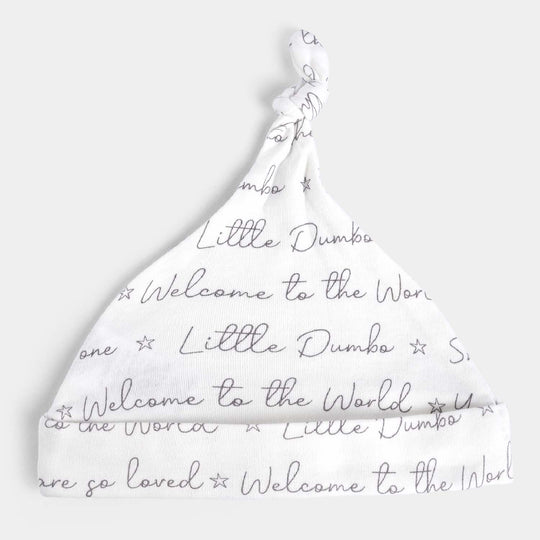 to the
mbo ☆
Little Dumbo
☆ Welcome to the Worl
one ☆ Little Dumbo ☆ S
☆ Welcome to the World ☆ y
to the World ☆ Little Dumbo ☆
are so loved ☆ Welcome to the Worl